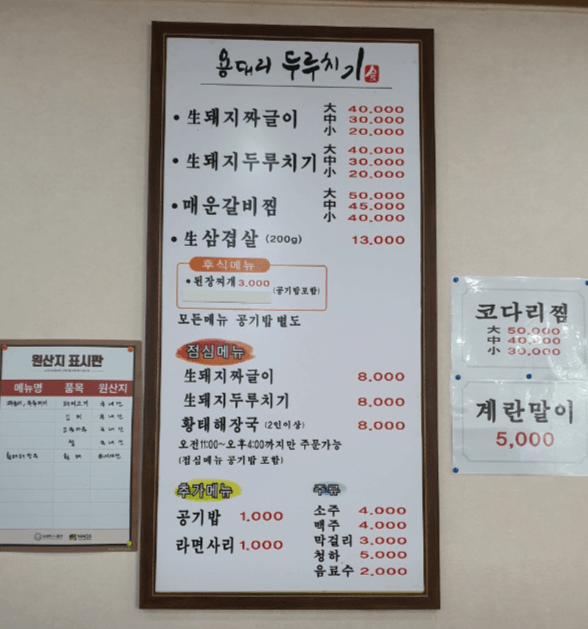 용대리 두루치기
• 生돼지짜글이 大 40,000
中 30,000
小 20,000
• 生돼지두루치기 大 40,000
中 30,000
小 20,000
• 매운갈비찜 大 50,000
中 45,000
小 40,000
• 生삼겹살 (200g) 13,000
후식메뉴
• 된장찌개 3,000 (공기밥포함)
모든메뉴 공기밥 별도
점심메뉴
生돼지짜글이 8,000
生돼지두루치기 8,000
황태해장국 (2인이상) 8,000
오전11:00~오후4:00까지만 주문가능
(점심메뉴 공기밥 포함)
추가메뉴
공기밥 1,000
라면사리 1,000
주류
소주 4,000
맥주 4,000
막걸리 3,000
청하 5,000
음료수 2,000
원산지 표시판
메뉴명 품목 원산지
코다리찜
大 50,000
中 40,000
小 30,000
계란말이
5,000